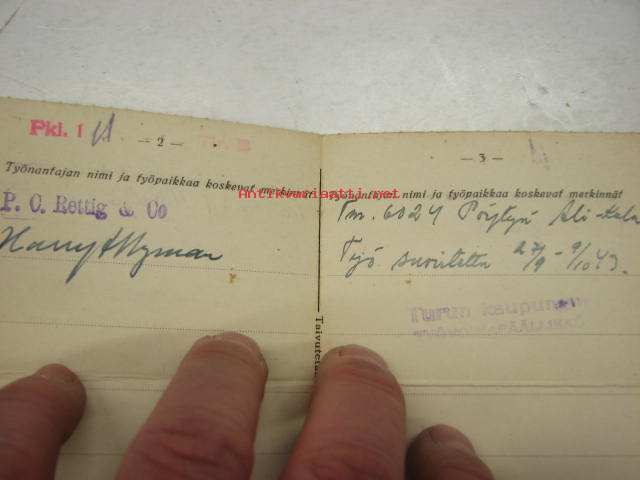 Pkl. 1
— 2 —
Työnantajan nimi ja työpaikkaa koskevat merkinnät
P. C. Rettig & Co
Harry Nyman
— 3 —
Työnantajan nimi ja työpaikkaa koskevat merkinnät
Tnr. 6024 Pöytyä Ali-Kula
Työ suoritettu 27/9 - 9/10 43.
Turun kaupungin
Taivuteta
Antikvariaatti.net